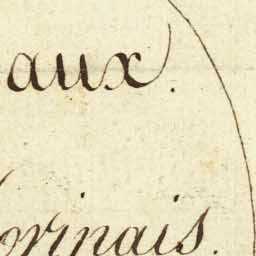 aux.
orinais.